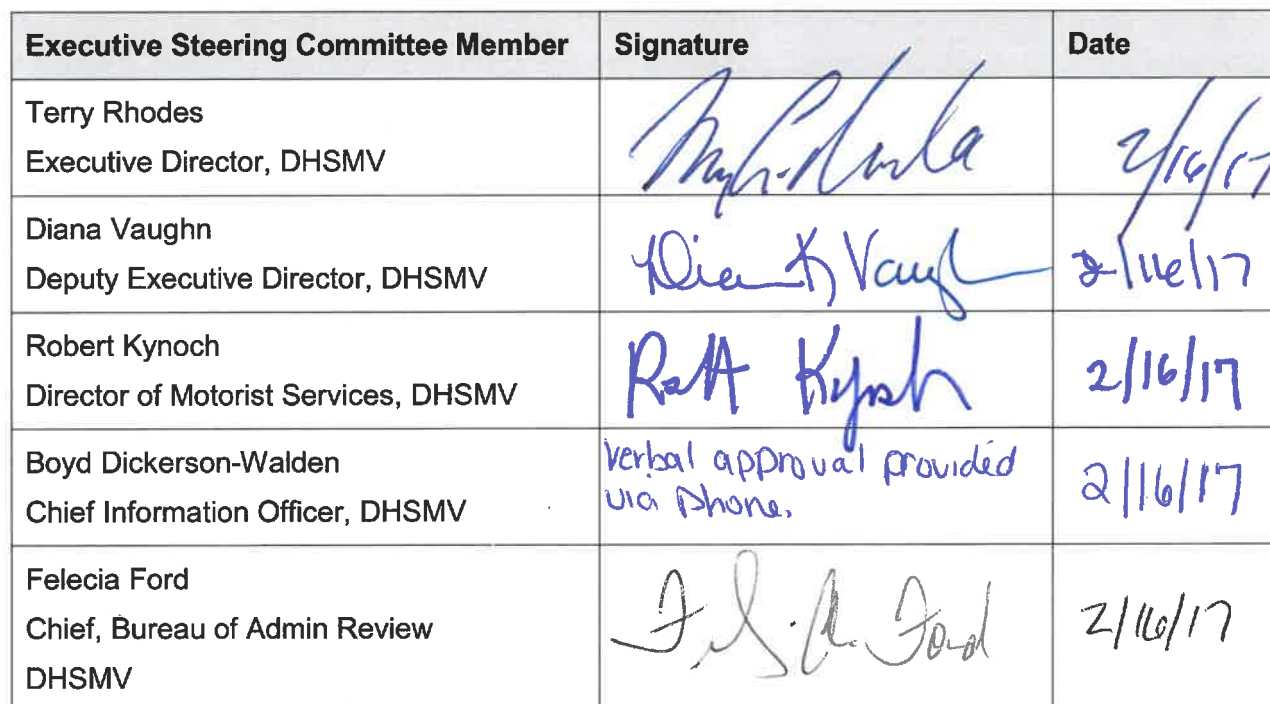 Executive Steering Committee Member Signature Date
Terry Rhodes
Executive Director, DHSMV
2/16/17
Diana Vaughn
Deputy Executive Director, DHSMV
Dian K Vaugh 2/16/17
Robert Kynoch
Director of Motorist Services, DHSMV
2/16/17
Boyd Dickerson-Walden
Chief Information Officer, DHSMV
verbal approval provided
via phone.
2/16/17
Felecia Ford
Chief, Bureau of Admin Review
DHSMV
Ford 2/16/17